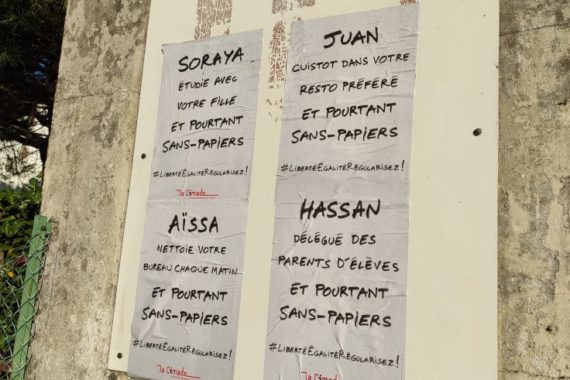 SORAYA
ÉTUDIE AVEC
VOTRE FILLE
ET POURTANT
SANS-PAPIERS
#LIBERTÉÉGALITÉRÉGULARISEZ!
La Cimade
JUAN
CUISTOT DANS VOTRE
RESTO PRÉFÉRÉ
ET POURTANT
SANS-PAPIERS
#LIBERTÉÉGALITÉRÉGULARISEZ!
AÏSSA
NETTOIE VOTRE
BUREAU CHAQUE MATIN
ET POURTANT
SANS-PAPIERS
#LIBERTÉÉGALITÉRÉGULARISEZ!
La Cimade
HASSAN
DÉLÉGUÉ DES
PARENTS D'ÉLÈVES
ET POURTANT
SANS-PAPIERS
#LIBERTÉÉGALITÉRÉGULARISEZ!
La Cimade